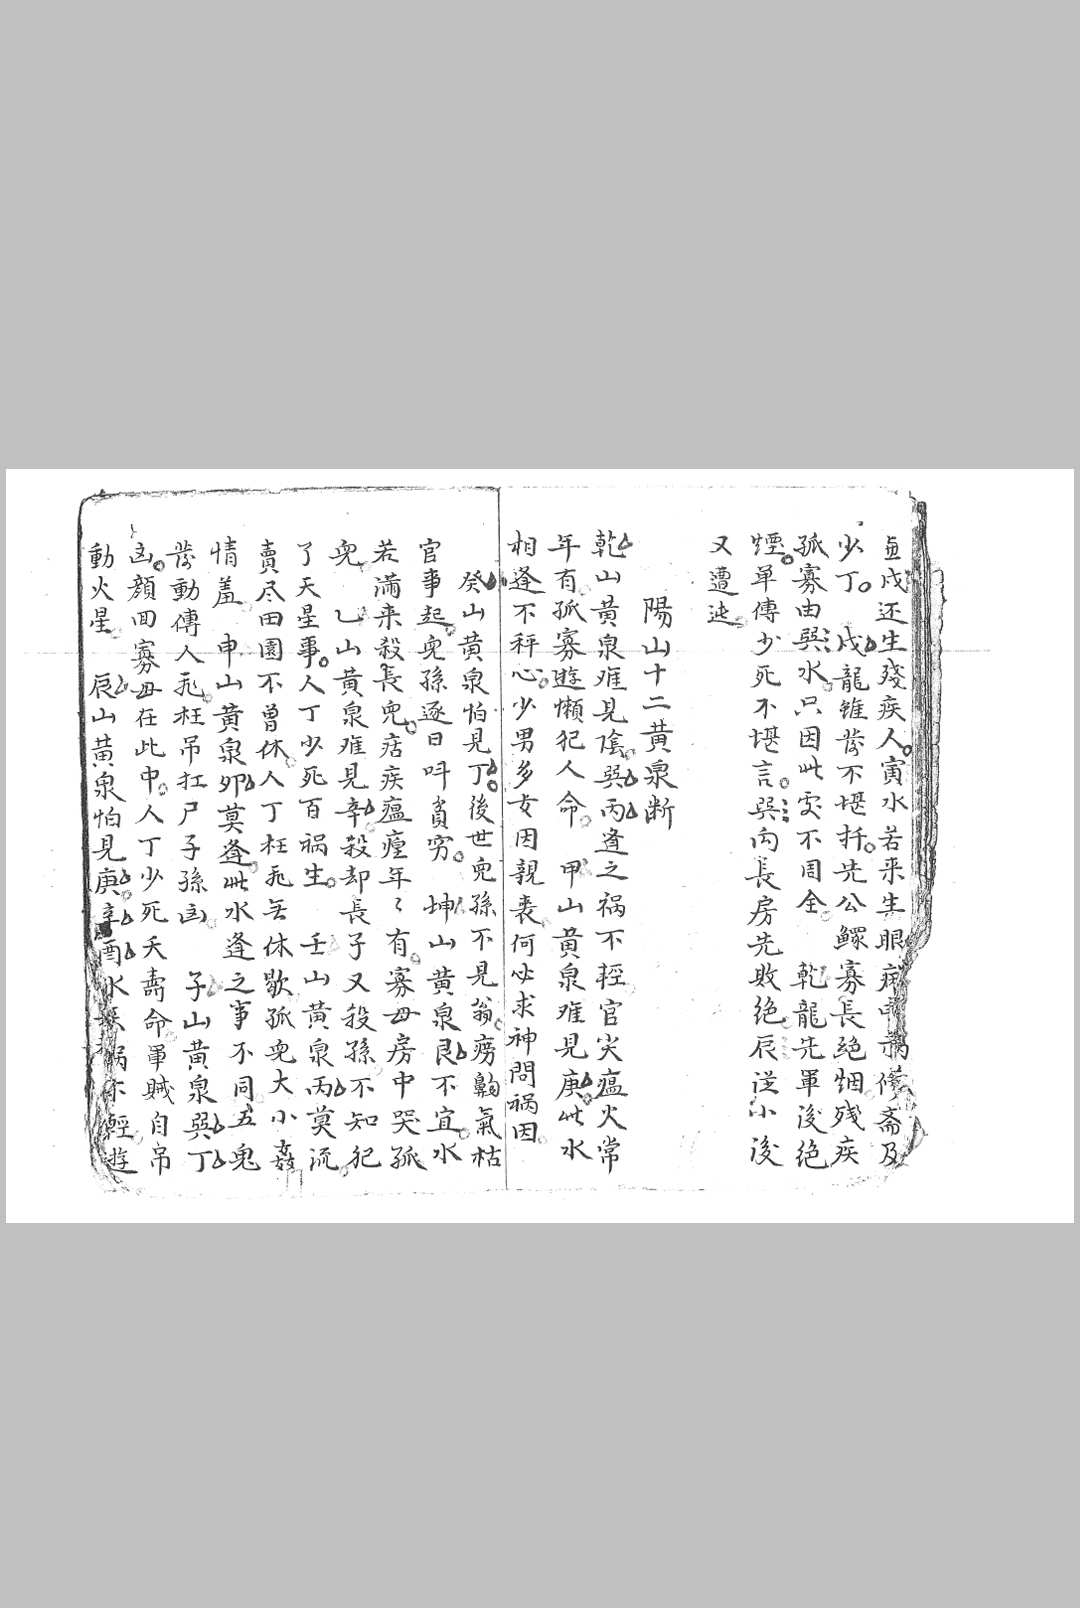 戌还生殘疾人寅水若来生眼齋及
少丁 戌龍雖發不堪扦先公鰥寡長絕烟残疾
孤寡由巽水只因此耍不周全 乾龍先單後絕
煙單傳少死不堪言巽向長房先敗絕辰従小後
又遭迍
陽山十二黃泉断
乾山黄泉难見陰巽丙逢之祸不輕官灾瘟火常
年有孤寡遊懶犯人命 甲山黄泉难見庚此水
相逢不秤心少男多女因親丧何必求神問祸因
癸山黄泉怕見丁後世児孫不見翁痨氣枯
官事起児孫逐日呌貧穷 坤山黄泉艮不宜水
若滿来殺長児痁疾瘟瘽年〻有寡母房中哭孤
児 乚山黄泉难見辛殺却長子又殺孫不知犯
了天星事人丁少死百祸生 壬山黄泉丙莫流
賣尽田園不曾休人丁枉死无休歇孤児大小姦
情羞 申山黃泉夘莫逢此水逢之事不同五鬼
發動傳人死枉吊扛尸子孫凶 子山黃泉巽丁
凶顔囬寡母在此中人丁少死夭壽命軍賊自吊
動火星 辰山黄泉怕見庚辛酉水祸不輕遊